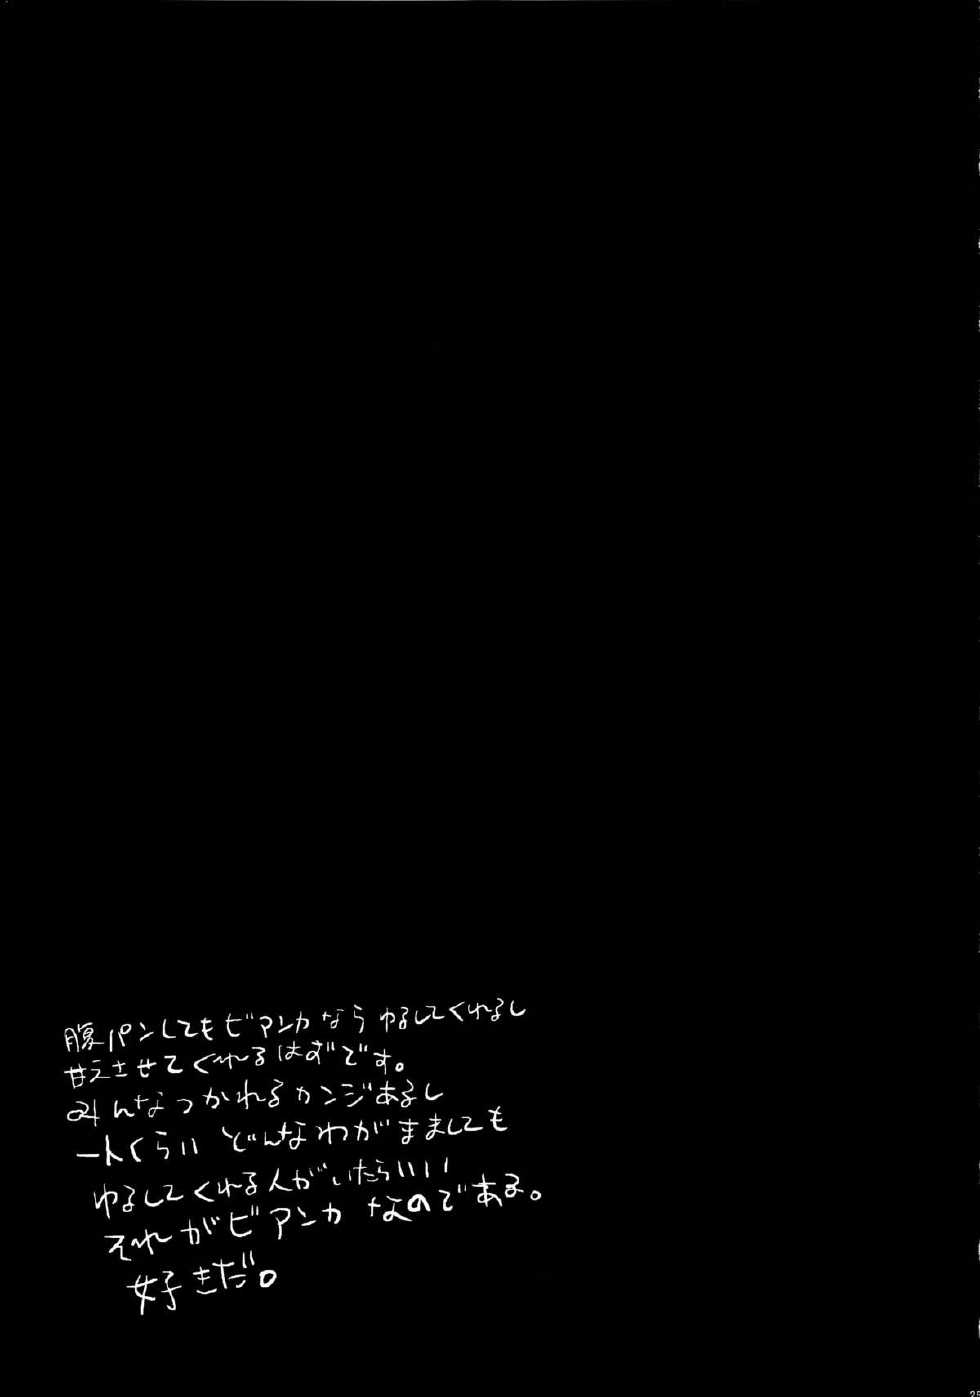 腹パンしてもビアンカならゆるしてくれるし
甘えさせてくれるはずです。
みんなつかれるカンジあるし
一人くらいどんなわがまましても
ゆるしてくれる人がいたらいい!
それがビアンカなのである。
好きだ。